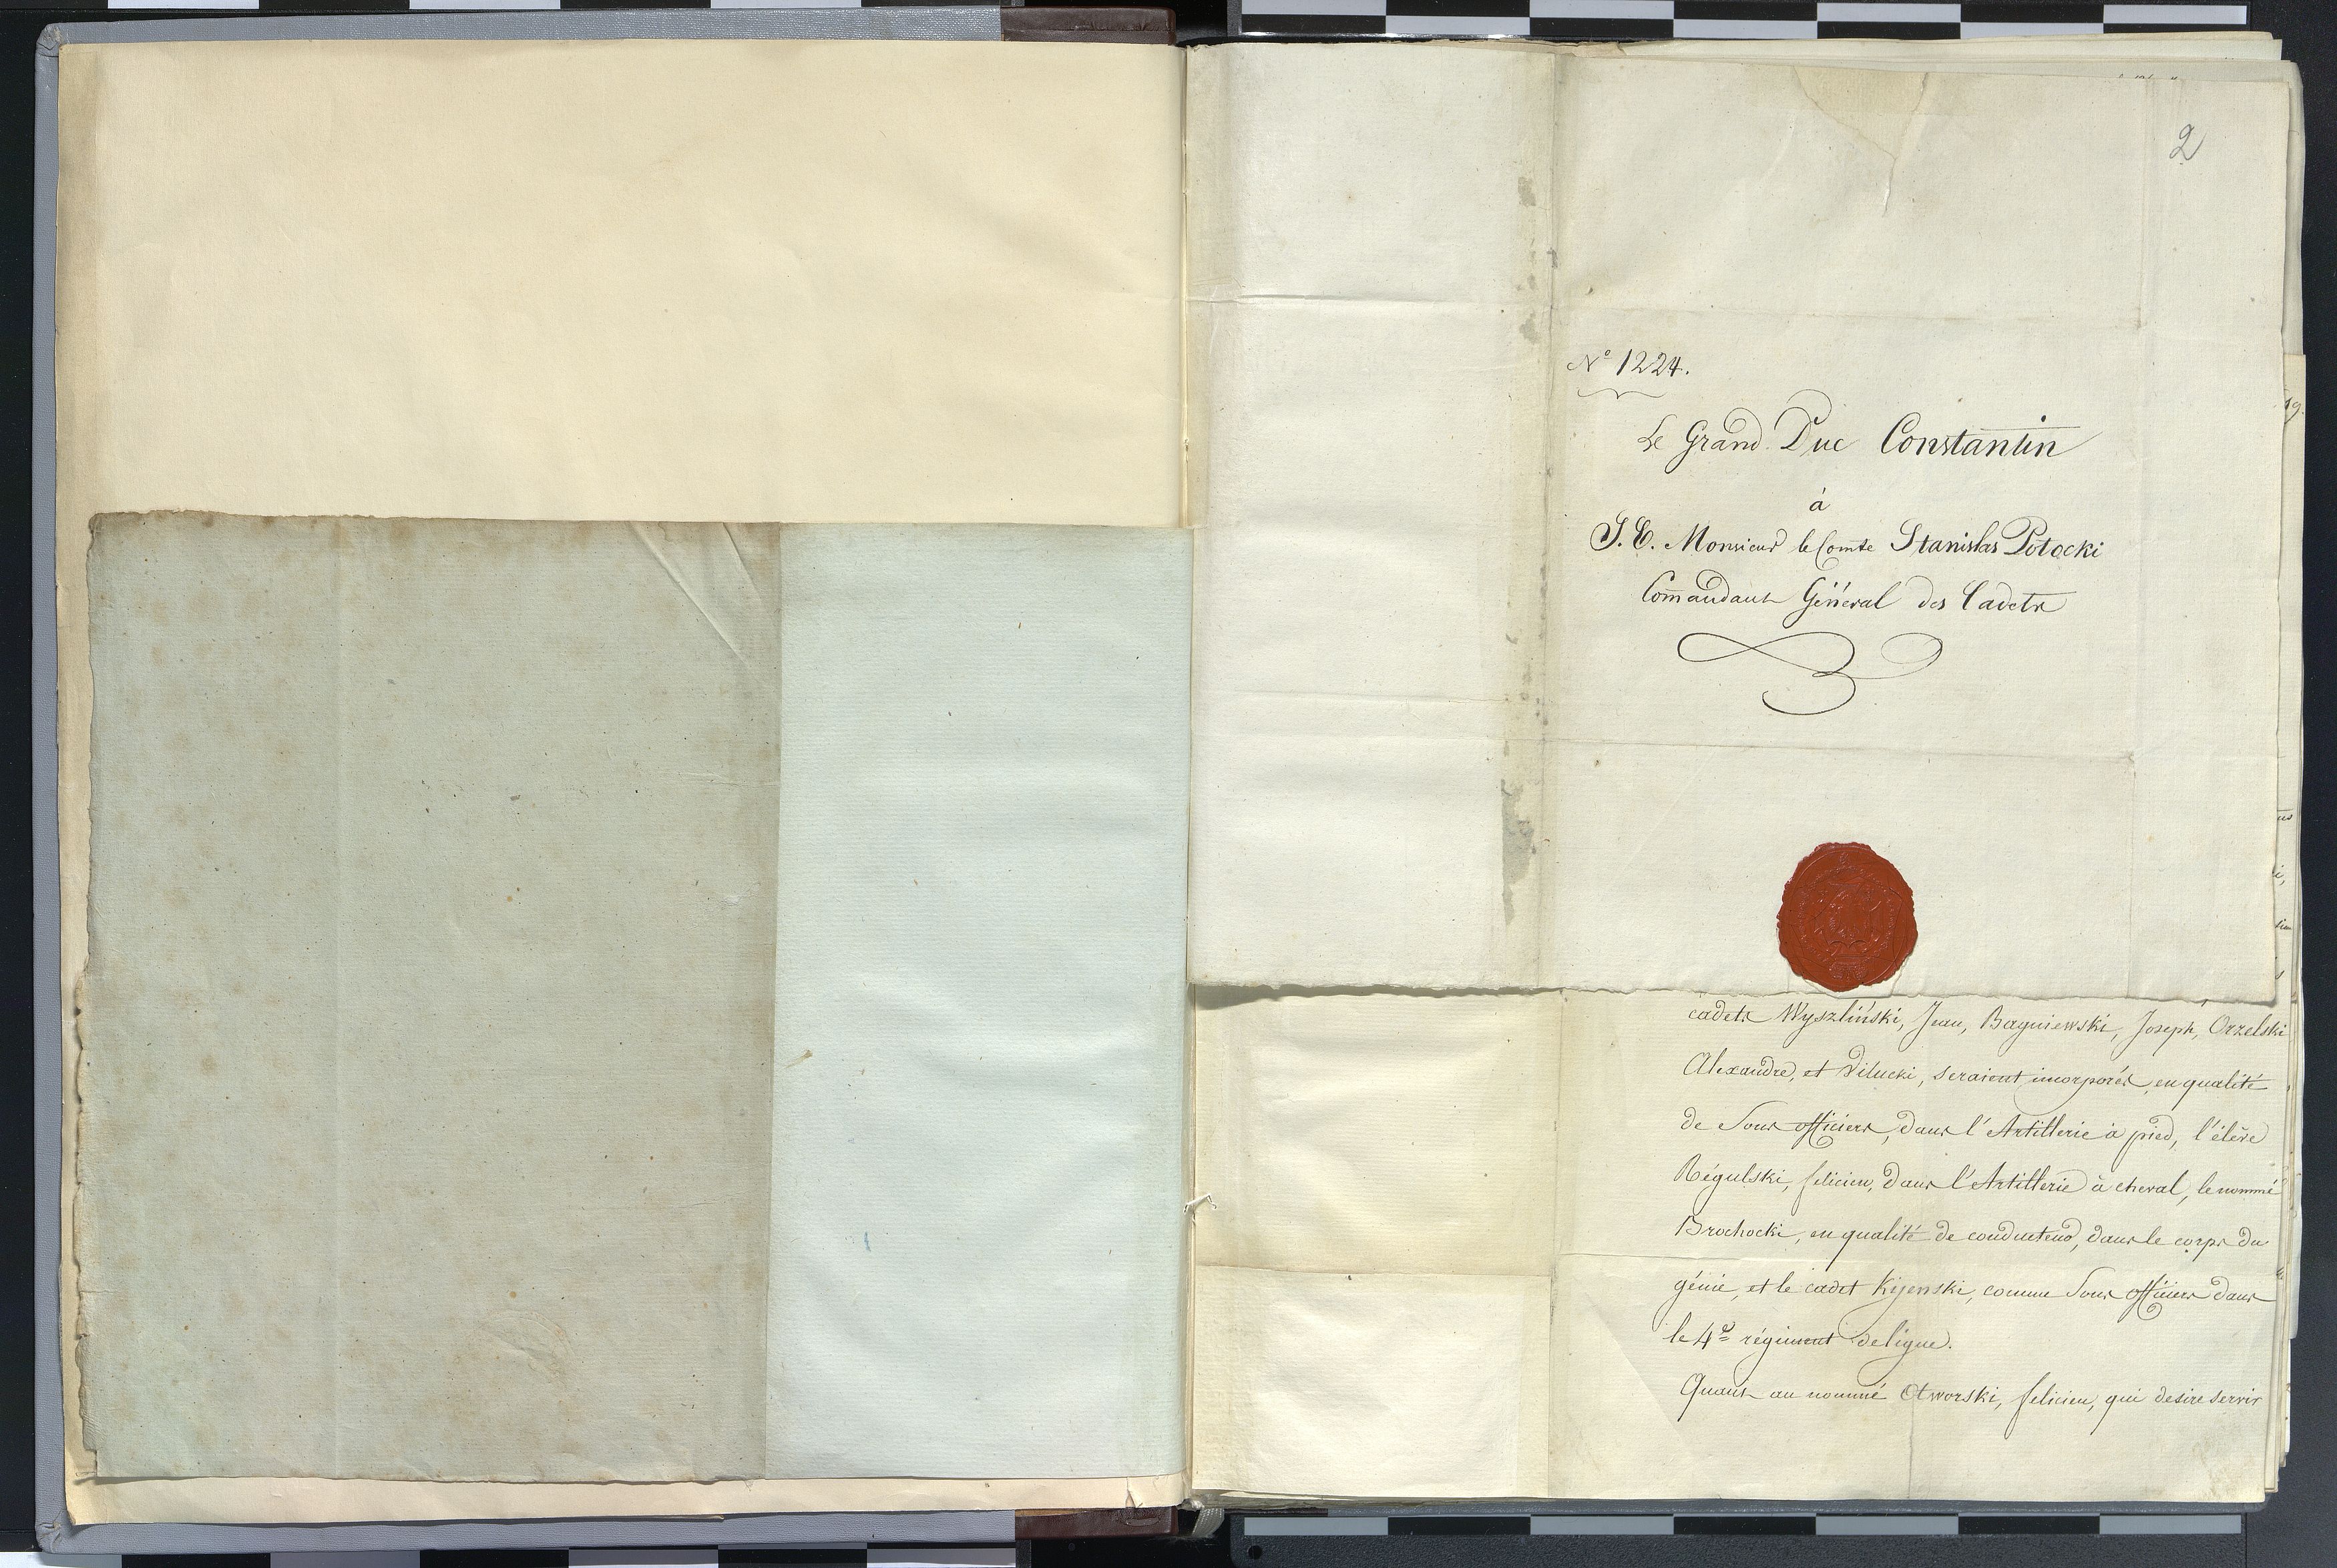 2
Nº 1224.
Le Grand Duc Constantin
à
S. E. Monsieur le Comte Stanislas Potocki
Com̄andant Général des Cadets
cadets Wyszliński, Jean, Bagniewski, Joseph, Orzelski
Alexandre, et Vilucki, seraient incorporés, en qualité
de Sous officiers, dans l'Artillerie à pied, l'élève
Régulski, felicien, dans l'Artillerie à cheval, le nommé
Brochocki, en qualité de conducteur, dans le corps du
génie, et le cadet Kijenski, comme Sous officier dans
le 4e régiment de ligne.
Quant au nommé Otworski, felicien, qui desire servir